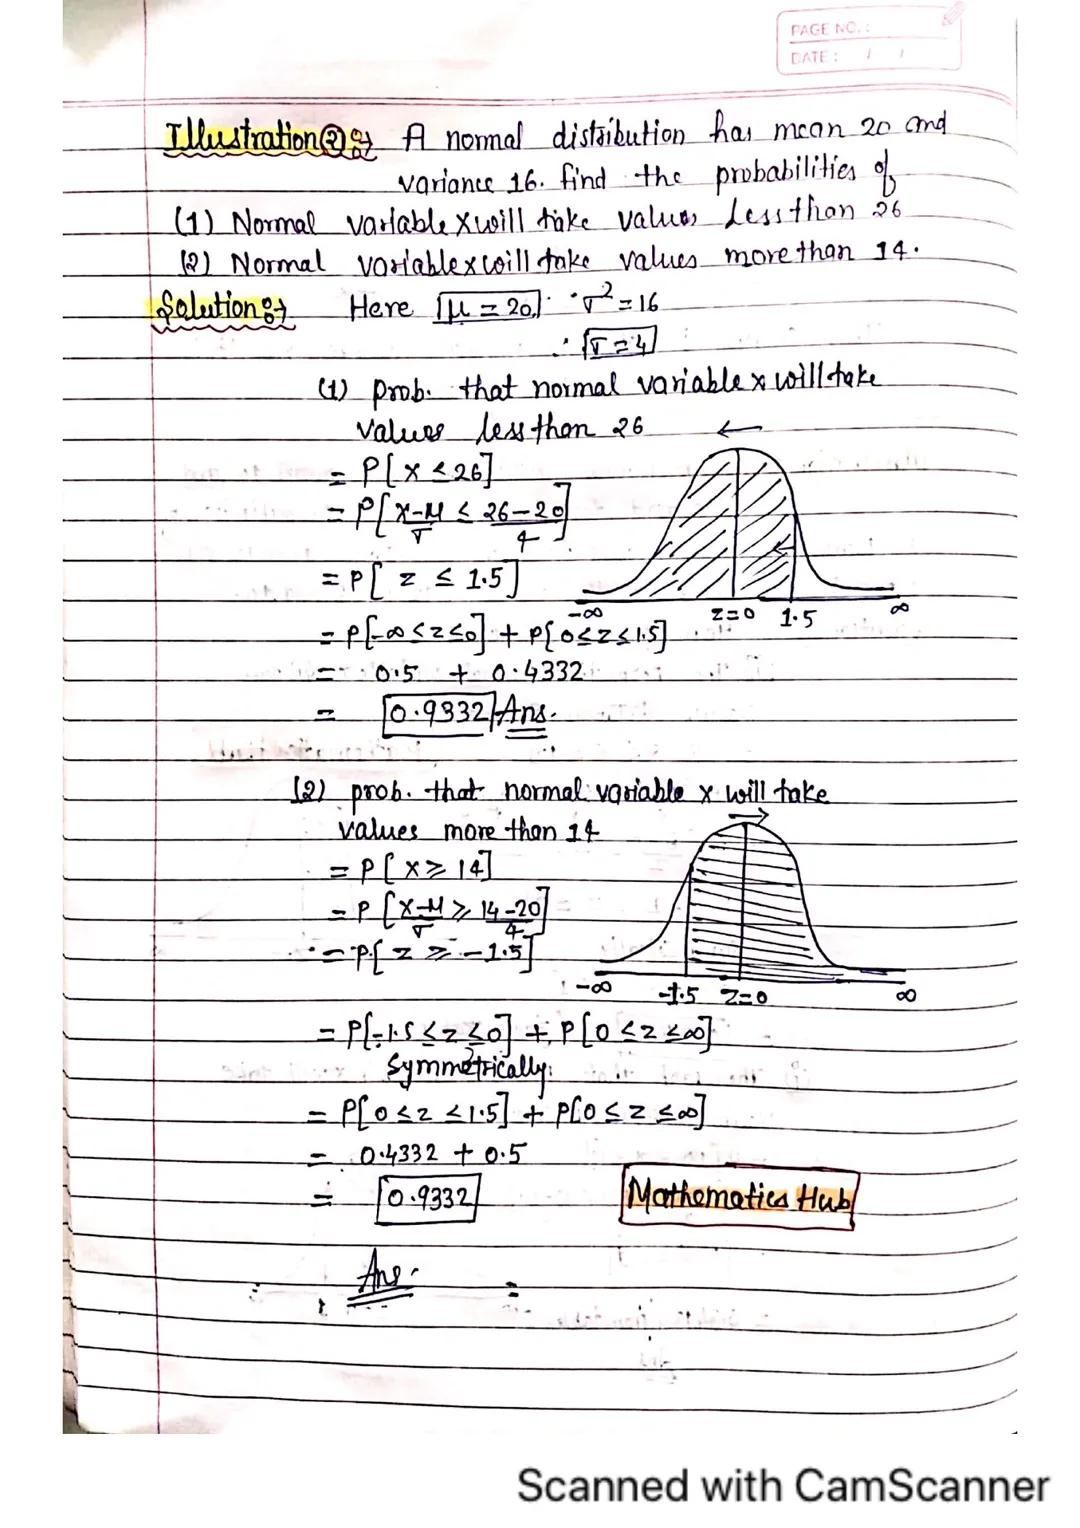 PAGE NO. :
DATE : / /
Illustration② :→ A normal distribution has mean 20 and
variance 16. find the probabilities of
(1) Normal variable X will take values Less than 26
(2) Normal variable x will take values more than 14.
Solution :→ Here μ = 20 ∵ σ² = 16
∴ σ = 4
(1) prob. that normal variable x will take
values less than 26
= P[X ≤ 26]
= P[X-μ/σ ≤ 26-20/4]
= P[z ≤ 1.5]
-∞ z=0 1.5 ∞
= P[-∞ ≤ z ≤ 0] + P[0 ≤ z ≤ 1.5]
= 0.5 + 0.4332
= 0.9332 Ans.
(2) prob. that normal variable x will take
values more than 14
= P[X ≥ 14]
= P[X-μ/σ ≥ 14-20/4]
= P[z ≥ -1.5]
-∞ -1.5 z=0 ∞
= P[-1.5 ≤ z ≤ 0] + P[0 ≤ z ≤ ∞]
Symmetrically
= P[0 ≤ z ≤ 1.5] + P[0 ≤ z ≤ ∞]
= 0.4332 + 0.5
= 0.9332
Mathematics Hub
Ans.
Scanned with CamScanner